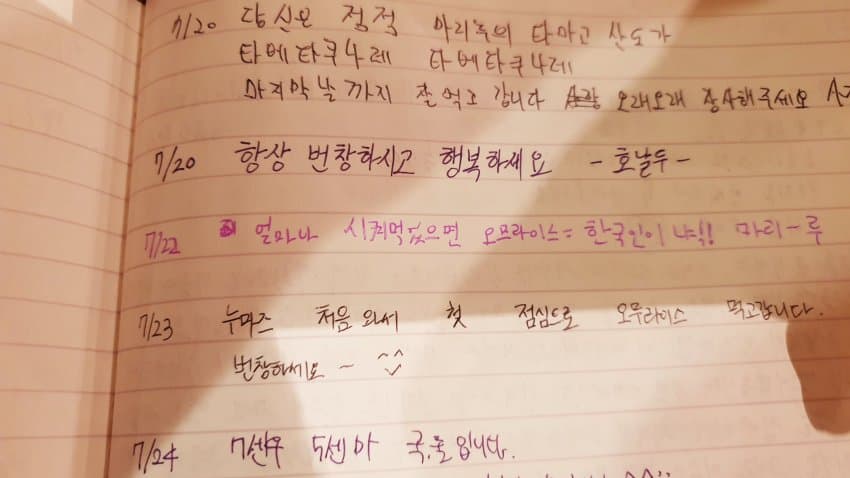 7/20 당신은 점적 마리루의 타마고 산도가
타베타쿠나레 타베타쿠나레
마지막날까지 잘 먹고 갑니다 오래오래 장사해주세요
7/20 항상 번창하시고 행복하세요 - 호날두 -
7/22 얼마나 시켜먹었으면 오므라이스 = 한국인이냐!! 마리-루
7/23 누마즈 처음 와서 첫 점심으로 오무라이스 먹고갑니다.
번창하세요 ~ ^^
7/24 5센마 국룰입니다.